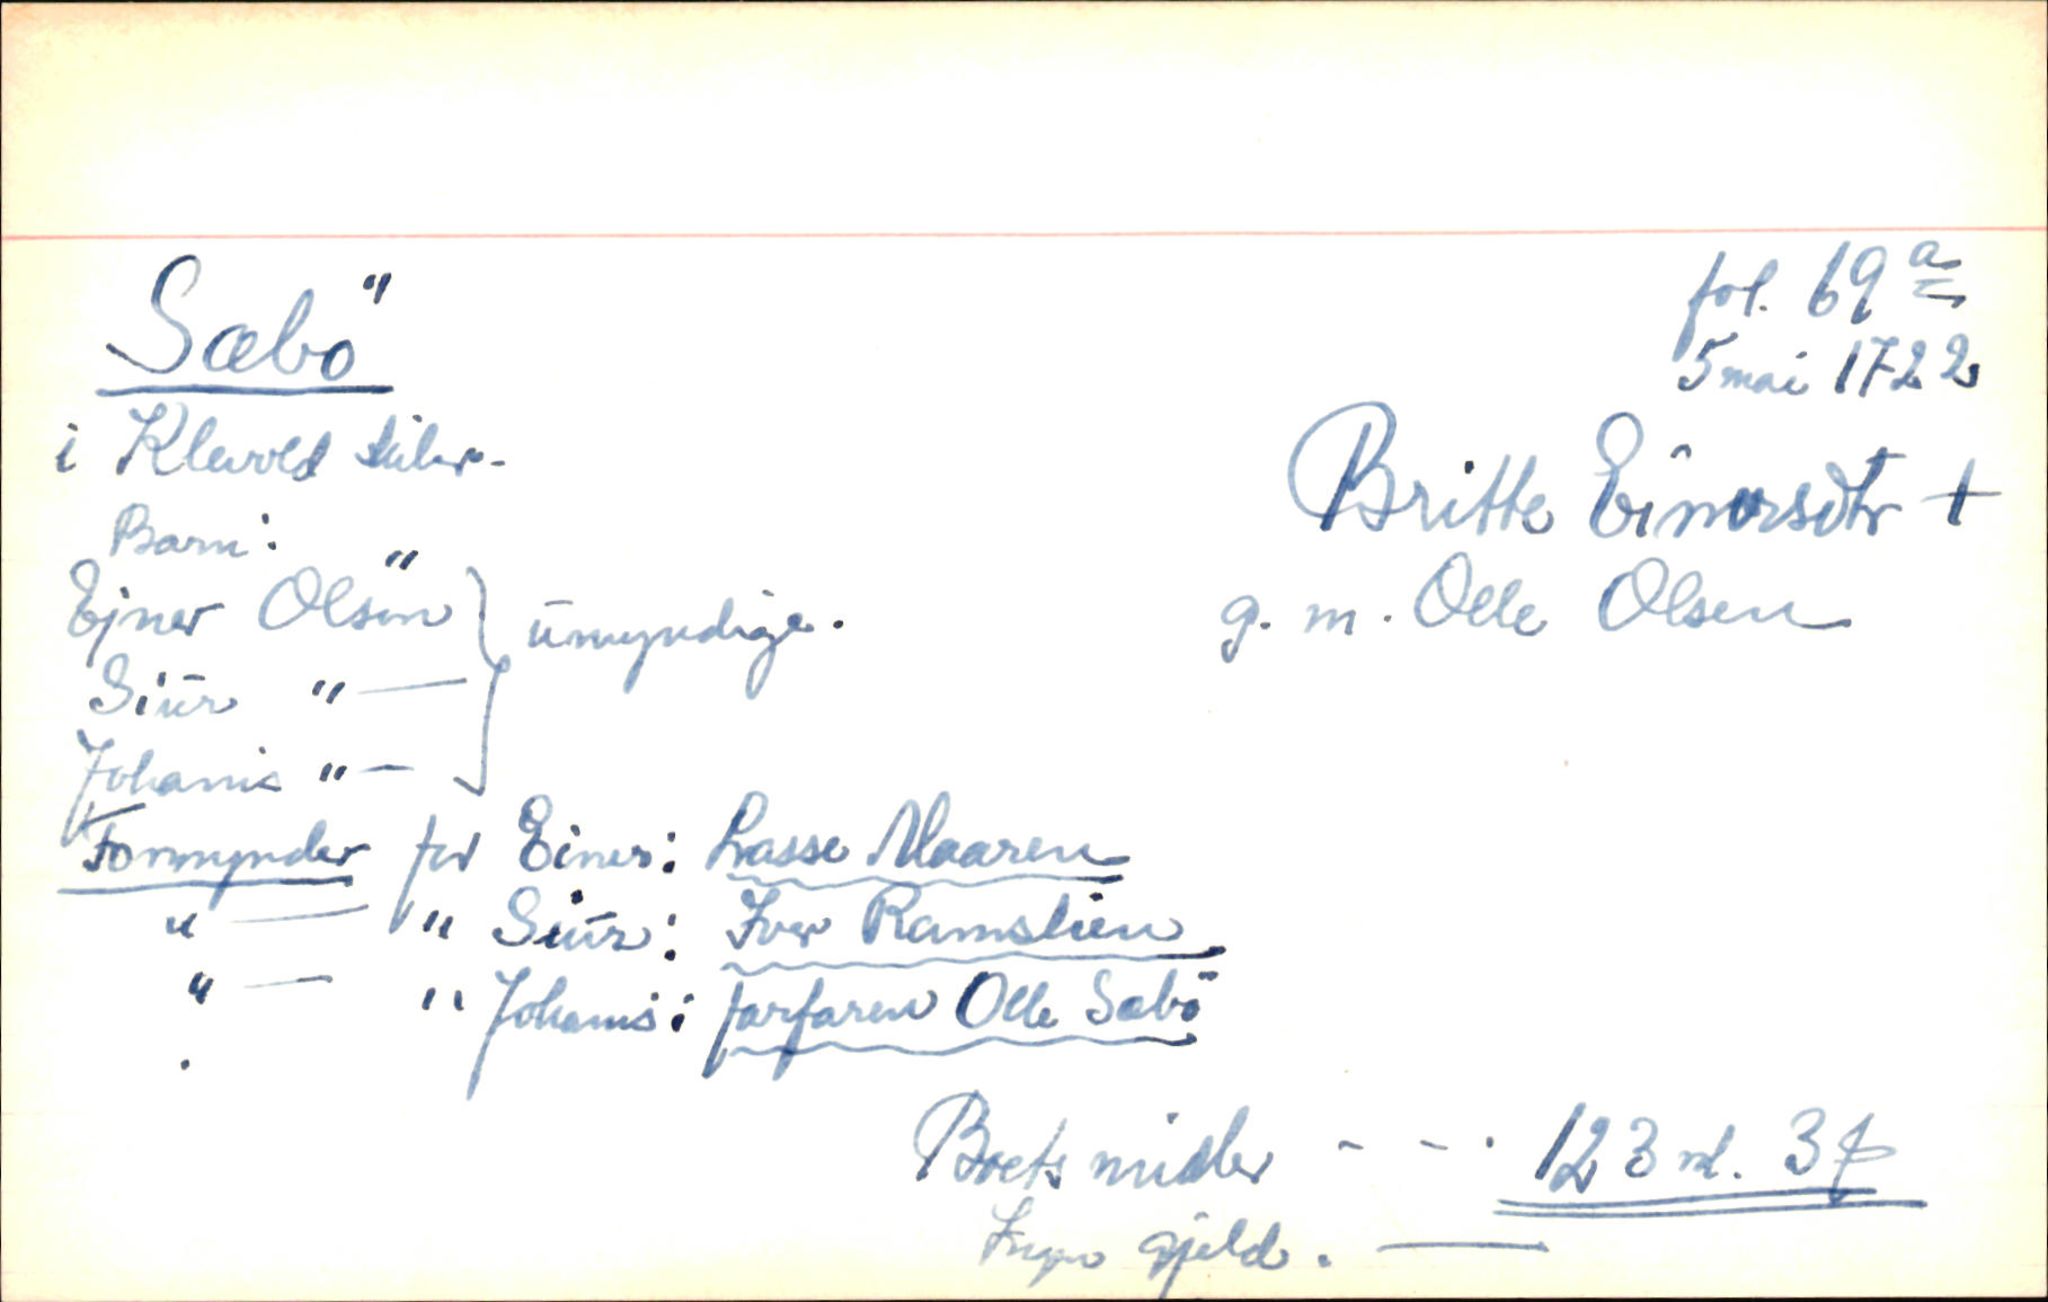 fol. 69 a
5 mai 1722
Sæbö
i Klævold
Britte Einersdtr +
g. m. Olle Olsen
Barn:
Ejner Olsön } umyndige.
Siur " —
Johanis " —
Formynder for Einer: Lasse Maaren
" — " Siur: Iver Ramslien
" — " Johanis: farfaren Olle Sæbö
Boets midler - - - 123 rd. 3 ß
Ingen gjeld. —